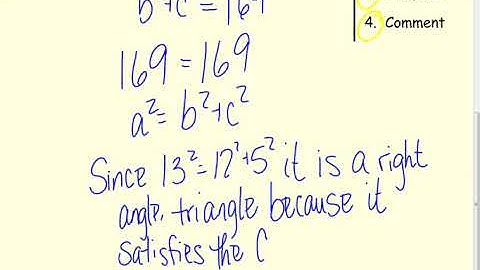 b²+c² = 169
4. Comment
169 = 169
a² = b²+c²
Since 13²=12²+5² it is a right
angle, triangle because it
satisfies the C